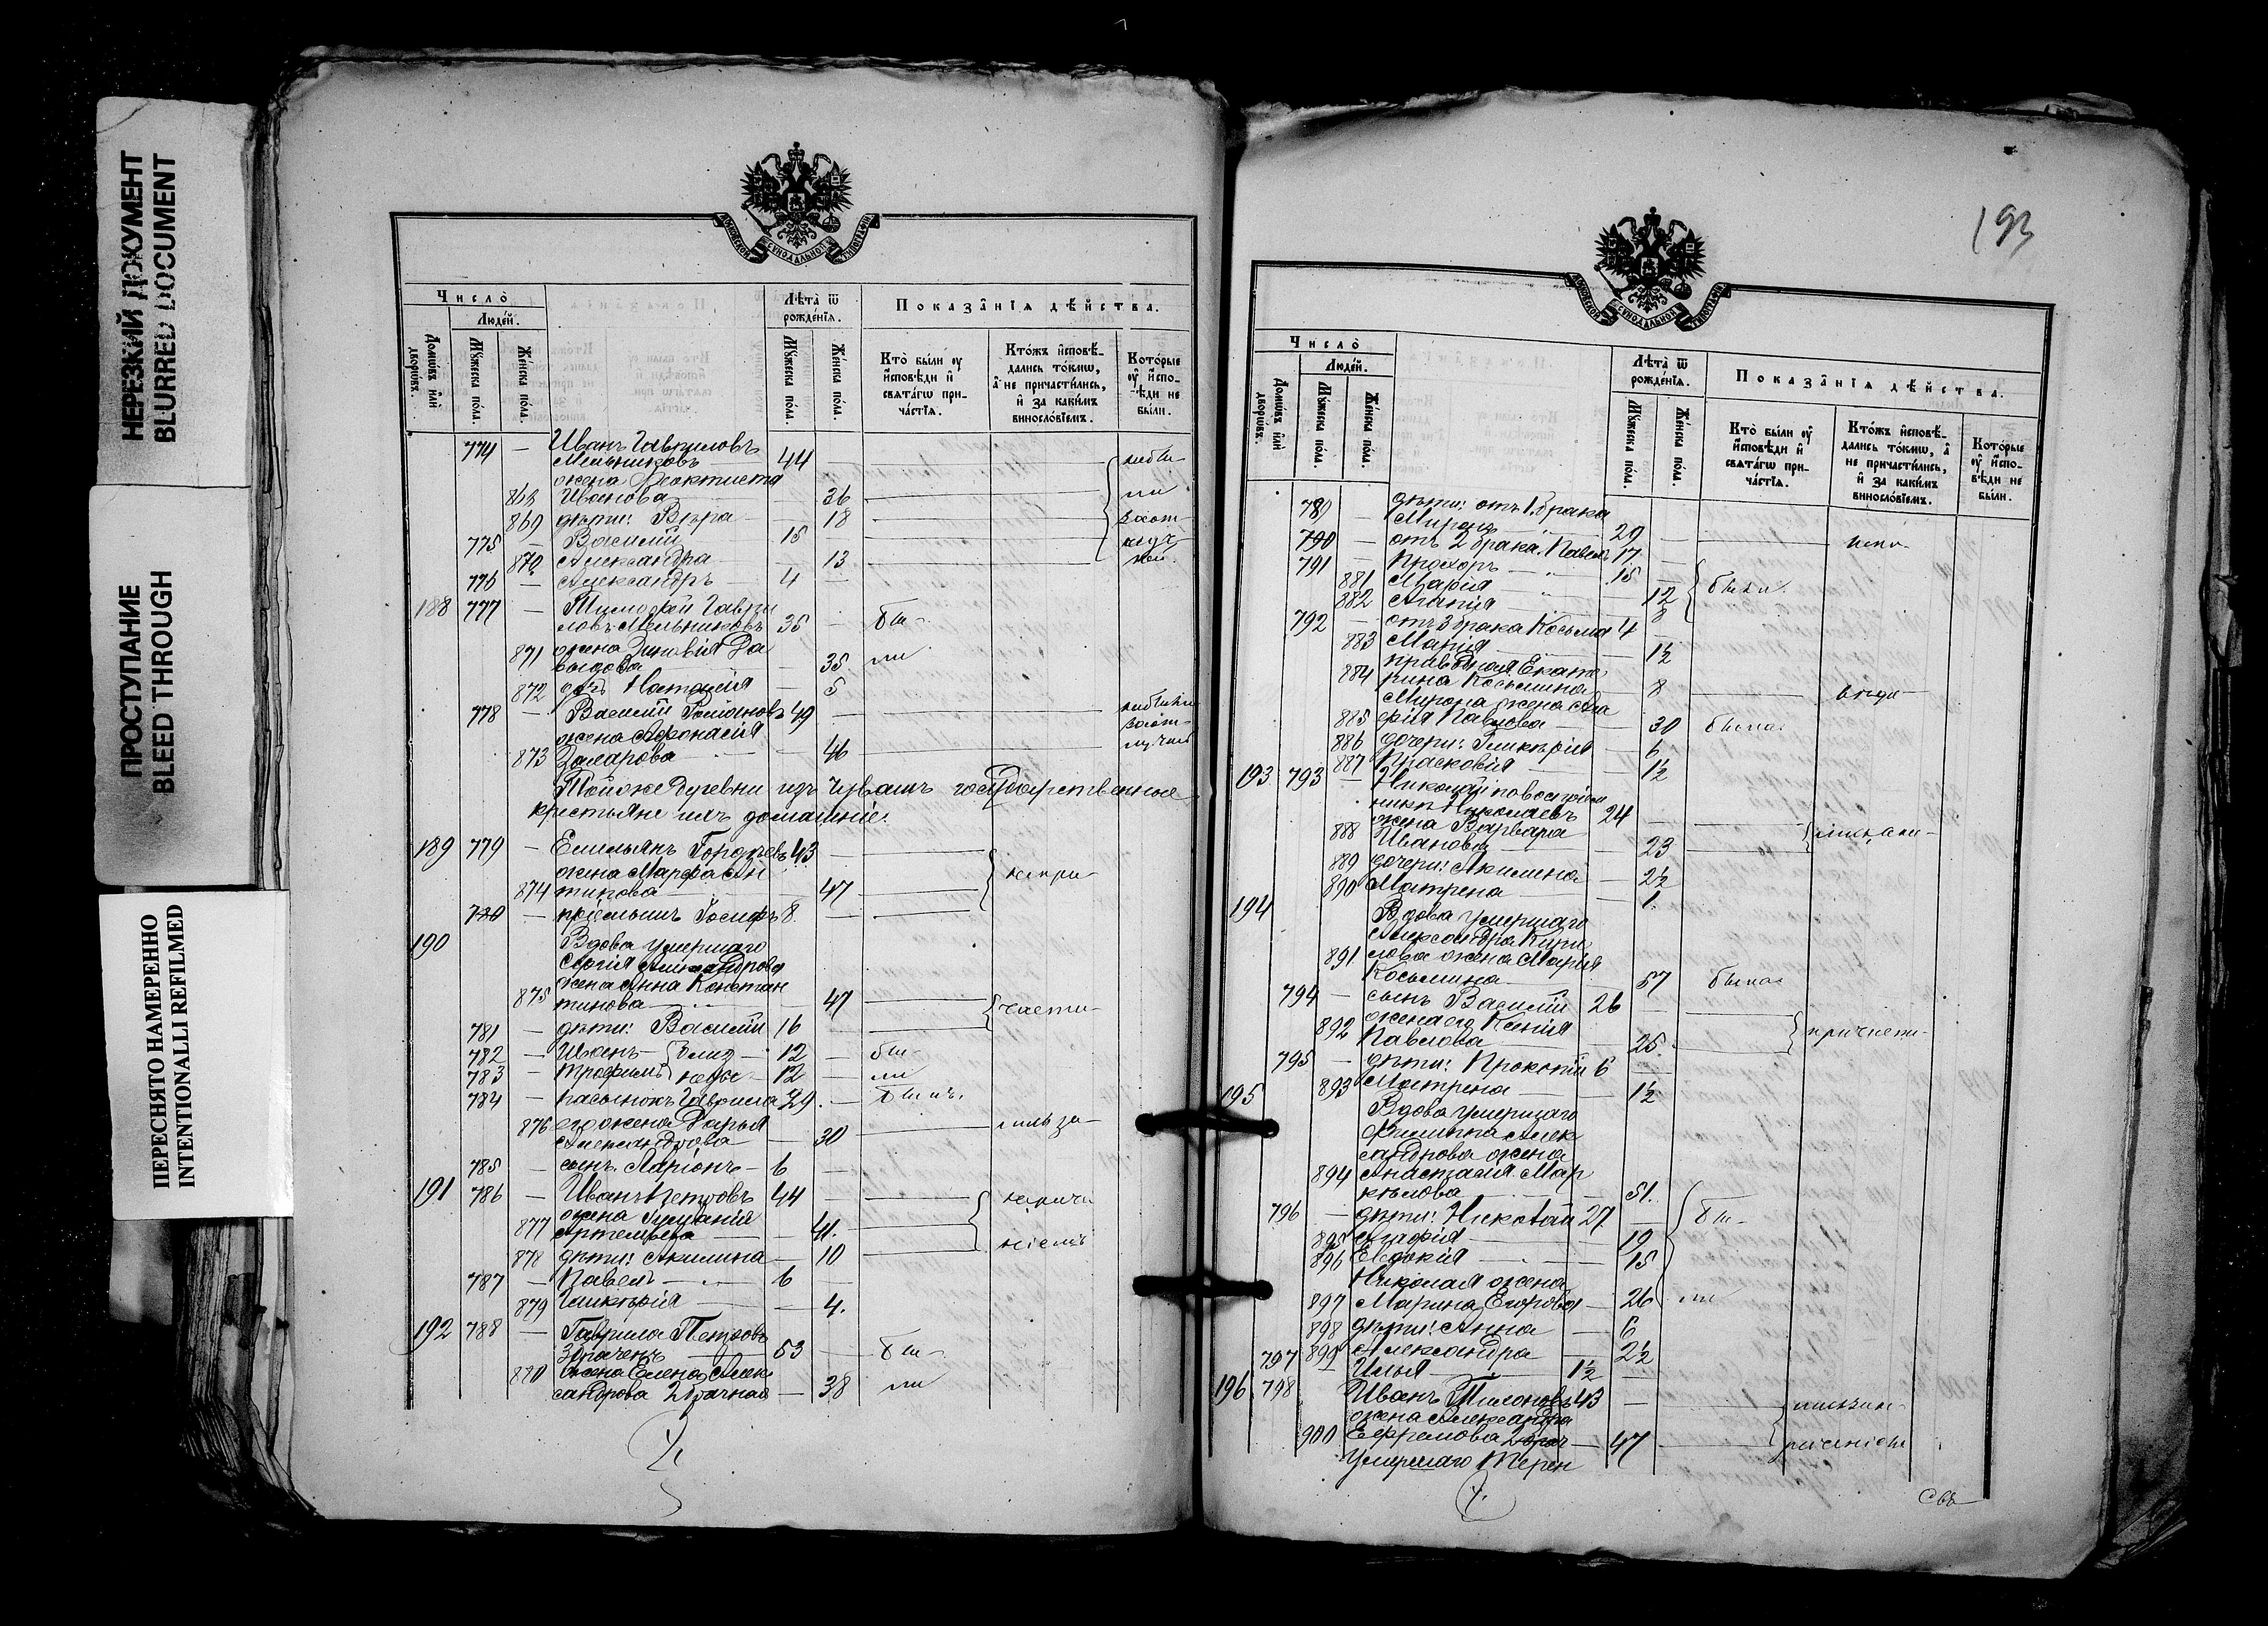 НЕРЕЗКИЙ ДОКУМЕНТ
BLURRED DOCUMENT
ПРОСТУПАНИЕ
BLEED THROUGH
ПЕРЕСНЯТО НАМЕРЕННО
INTENTIONALLI REFILMED
МОСКОВСКОЙ СѴНОДАЛЬНОЙ ТИПОГРАФІИ
Число̀
Людей.
Домѡвъ и҆лѝ дворѡвъ.
Мꙋжеска пола.
Женска пола.
Лѣта̀ ѿ рожденїѧ.
Мꙋжеска пола.
Женска пола.
Показанїѧ дѣйства.
Кто̀ были ᲂу҆ и҆сповѣди и҆ свѧтагѡ причастїѧ.
Ктожъ и҆сповѣдались токмѡ, а҆ не причастились, и҆ за какимъ винословїемъ.
Которые ᲂу҆ и҆сповѣди не были.
774 — Иванъ Гавриловъ
Мельниковъ 44 — небы
жена Феоктиста
868 Иванова — 36 ли
869 дѣти: Вѣра — 18
775 — Василій 15
870 Александра — 13
776 — Александръ 4 —
188 777 — Тимофей Гаври
ловъ Мельниковъ 35 — бы-
871 жена Зиновія Да
выдова — 35 ли
872 дочь Наталія — 5
778 — Василій Романовъ 49 — небыли
жена Афонасія
873 Захарова — 46
Тойже деревни изъ чувашъ государственные
крестьяне ихъ домашніе:
189 779 — Емельянъ Гордѣевъ 43 —
жена Марфа Ан
874 типова — 47 непри
780 — пріемышъ Іосифъ 8 —
190 Вдова умершаго
Сергія Александрова
жена Анна Констан
875 тинова — 47 части-
781 — дѣти: Василій 16 —
782 — Иванъ близ 12 — бы-
783 — Трофимъ нецы 12 — ли
784 — пасынокъ Гаврила 29 — былъ.
876 его жена Дарья
Александрова — 30 лись за
785 — сынъ Ларіонъ 6 —
191 786 — Иванъ Петровъ 44 —
жена
877 Артемьева — 41.
878 дѣти: Акилина — 10 ніемъ
787 — Павелъ 6 —
879 Гликерія — 4.
192 788 — Гаврила Петровъ
3 браченъ 53 — бы-
880 жена Елена Алек
сандрова 2 брачная — 38 ли
193
Число̀
Людей.
Домѡвъ и҆лѝ дворѡвъ.
Мꙋжеска пола.
Женска пола.
Лѣта̀ ѿ рожденїѧ.
Мꙋжеска пола.
Женска пола.
Показанїѧ дѣйства.
Кто̀ были ᲂу҆ и҆сповѣди и҆ свѧтагѡ причастїѧ.
Ктожъ и҆сповѣдались токмѡ, а҆ не причастились, и҆ за какимъ винословїемъ.
Которые ᲂу҆ и҆сповѣди не были.
789 — дѣти: отъ 1. брака
Миронъ 29 —
790 — отъ 2 брака Павелъ 17.
791 — Прохоръ 15
881 Марія 12 были.
882 Агапія 8
792 — отъ 3 брака Косьма 4 —
883 Марія — 1½
884 Екате
рина Косьмина — 8
Мирона жена Ага
885 фія Павлова — 30 была
886 дочери: Гликерія — 6
887 Прасковія — 1½
193 793 — Николай
Николаевъ 24 —
жена Варвара
888 Иванова — 23
889 дочери: Акилина — 2½
890 Матрена — 1
194 Вдова умершаго
Александра Кири
891 лова жена Марія
Косьмина — 57 была
794 — сынъ Василій 26 —
жена его Ксенія
892 Павлова — 25. причасти-
795 — дѣти: Прокопій 6
893 Матрена — 1½
195 Вдова умершаго
Филиппа Алек
сандрова жена
894 Анастасія Мар
келова — 51.
796 — дѣти: Николай 27 — бы-
895 Агафія — 19
896 Евдокія — 15
Николая жена
897 Марина Егорова — 26 ли
898 дѣти: Анна — 6
899 Александра — 2½
797 — Илья 1½ —
196 798 Иванъ Тимоновъ 43 —
жена Александра
900 Ефремова 2 брач — 47
Умершаго Терен